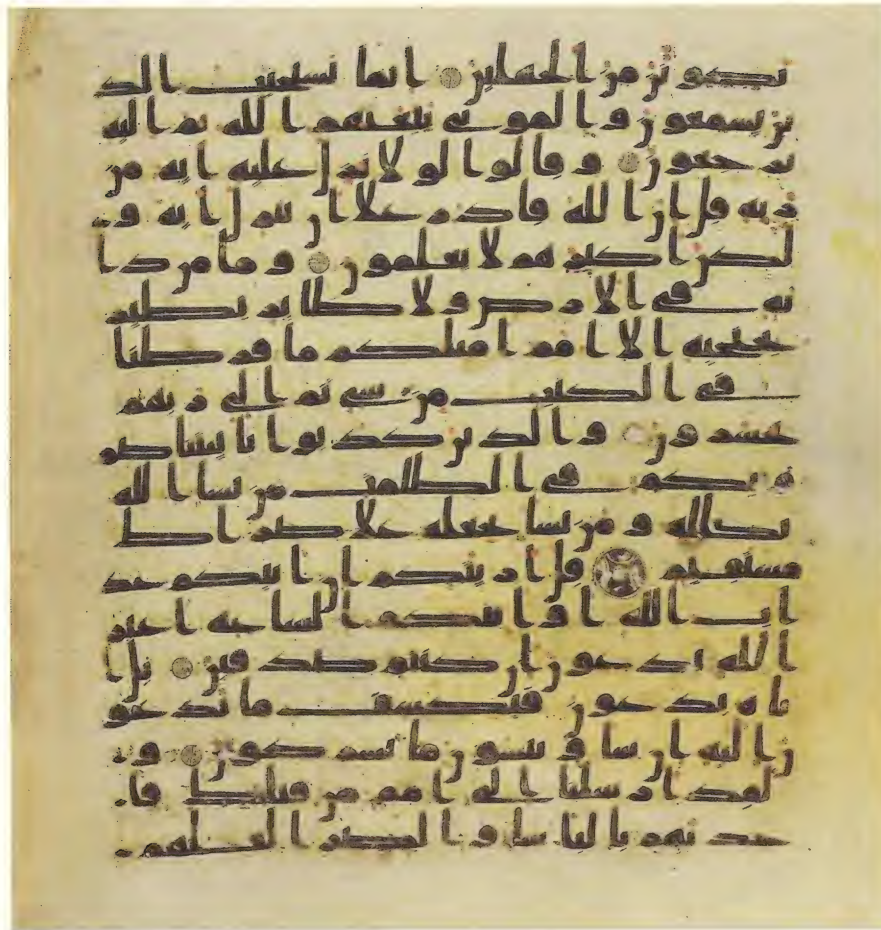 تكونن من الجهلين انما يستجيب الذ
ين يسمعون والموتى يبعثهم الله ثم اليه
يرجعون وقالوا لولا نزل عليه اية من
ربه قل ان الله قادر علا ان ينزل اية و
لكن اكثرهم لا يعلمون وما من دا
بة في الارض ولا طاير يطير
بجنحيه الا امم امثلكم ما فرطنا
في الكتب من شي ثم الى ربهم
يحشرون والذين كذبوا بايتنا صم
وبكم في الظلمت من يشا الله
يضلله ومن يشا يجعله علا صرط
مستقيم قل اريتكم ان اتيكم عذ
اب الله او اتتكم الساعة اغير
الله تدعون ان كنتم صدقين بل ا
ياه تدعون فيكشف ما تدعو
ن اليه ان شا وتنسون ما تشركون و
لقد ارسلنا الى امم من قبلك فا
خذنهم بالباسا والضرا لعلهم